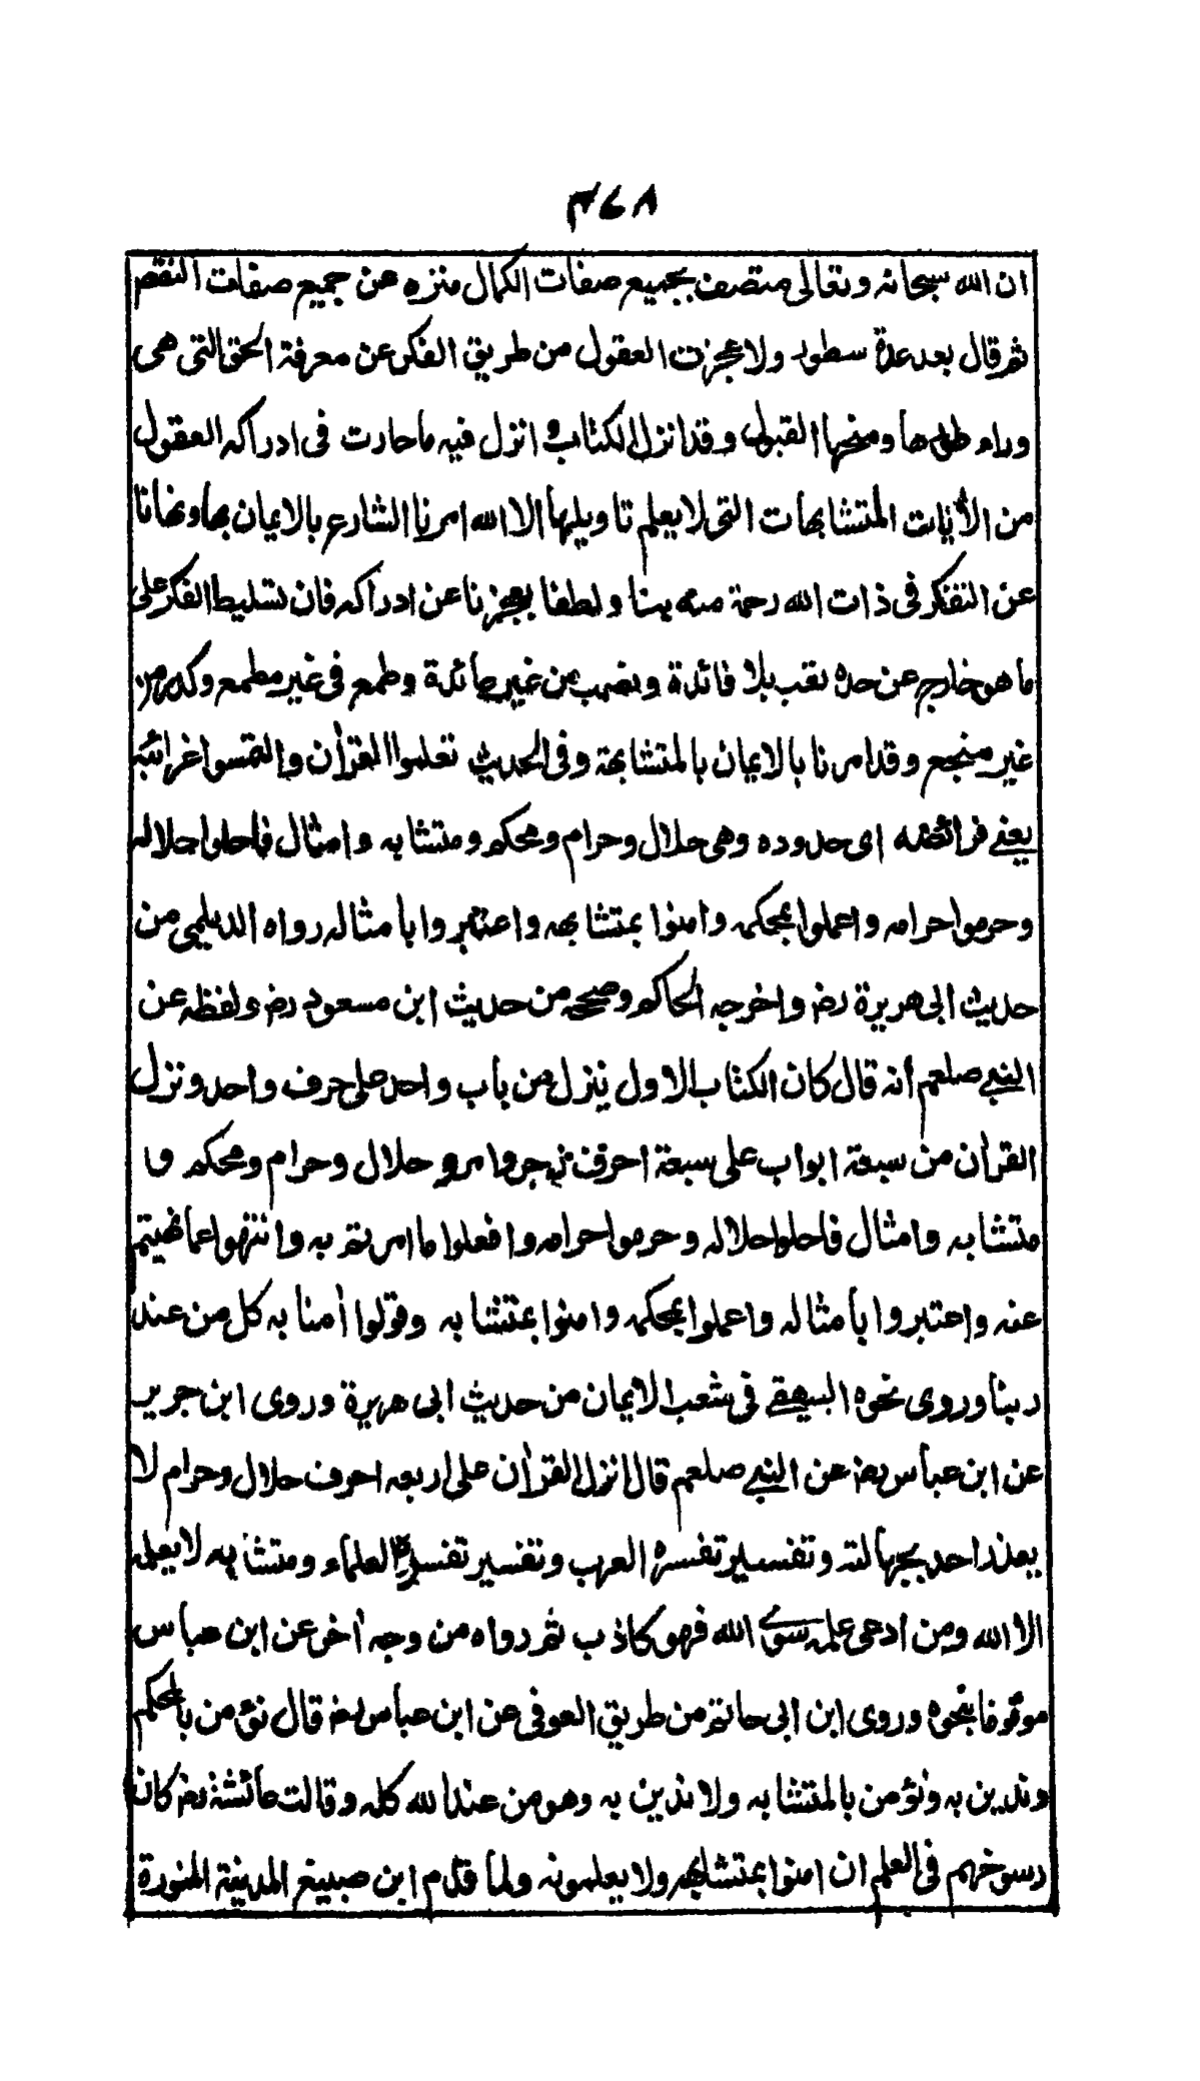 ٣٤٨
ان الله سبحانه وتعالى متصف بجميع صفات الكمال منزه عن جميع صفات النقص
ثم قال بعد عدة سطور ولا عجزت العقول من طريق الفكر عن معرفة الحق التى هى
وراء طورها ومنحها القبول وقد انزل الكتاب و انزل فيه ما حارت فى ادراكه العقول
من الأيات المتشابهات التى لا يعلم تاويلها الا الله امرنا الشارع بالايمان بها ونهانا
عن التفكر فى ذات الله رحمة منه بنا ولطفا بعجزنا عن ادراكه فان تسليط الفكر على
ما هو خارج عن حده تعب بلا فائدة ونصب من غير عائدة وطمع فى غير مطمع وكد من
غير منجع وقد امرنا بالايمان بالمتشابهة وفى الحديث تعلموا القرأن والتمسوا غرائبه
يعنى فرائضه اى حدوده وهى حلال وحرام ومحكم ومتشابه وامثال فاحلوا حلاله
وحرموا حرامه واعملوا بمحكمه وامنوا بمتشابهه واعتبروا بامثاله رواه الديلمى من
حديث ابى هريرة رضـ واخرجه الحاكم وصححه من حديث ابن مسعود رضـ ولفظه عن
النبى صلعم أنه قال كان الكتاب الاول ينزل من باب واحد على حرف واحد ونزل
القرأن من سبعة ابواب على سبعة احرف زجر وامر و حلال وحرام ومحكم وا
متشابه وامثال فاحلوا حلاله وحرموا حرامه وافعلوا ما امرتم به وانتهوا عما نهيتم
عنه واعتبروا بامثاله واعملوا بمحكمه وامنوا بمتشابه وقولوا أمنا به كل من عند
ربنا وروى نحوه البيهقى فى شعب الايمان من حديث ابى هريرة وروى ابن جرير
عن ابن عباس رضـ عن النبى صلعم قال انزل القرأن على اربعه احرف حلال وحرام لا
يعذر احد بجهالته وتفسير تفسره العرب وتفسير تفسره العلماء ومتشابه لا يعلمه
الا الله ومن ادعى علمه سوى الله فهو كاذب ثم رواه من وجه أخر عن ابن عباس
موقوفا بنحوه وروى ابن ابى حاتم من طريق العوفى عن ابن عباس رضـ قال نؤمن بالمحكم
وندين به ونؤمن بالمتشابه ولا ندين به وهو من عند الله كله وقالت عائشة رضـ كان
رسوخهم فى العلم ان امنوا بمتشابهه ولا يعلمونه ولما قدم ابن صبيغ المدينة المنورة